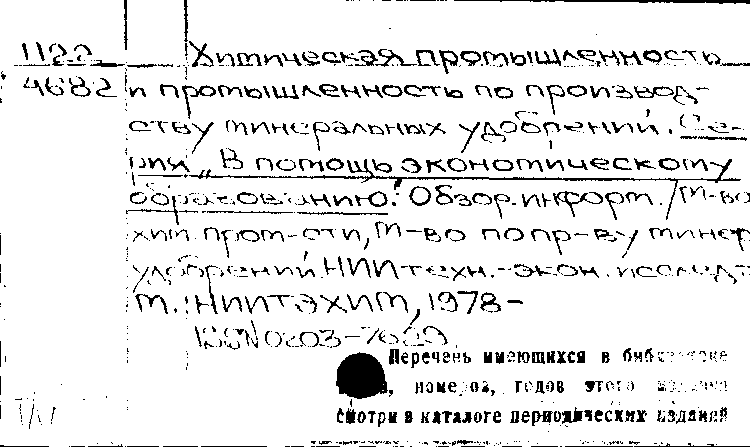 1122 Химическая промышленность
4682 и промышленность по производ-
ству минеральных удобрений. Се-
рия „В помощь экономическому
образованию". Обзор. информ. / М-во
хим. пром-сти, М-во по пр-ву минер
удобрений. НИИ техн.-экон. исслед
М.: НИИТЭХИМ, 1978-
ISSN 0203-
Перечень имеющихся в библиотеке
номеров, годов этого издания
смотри в каталоге периодических изданий